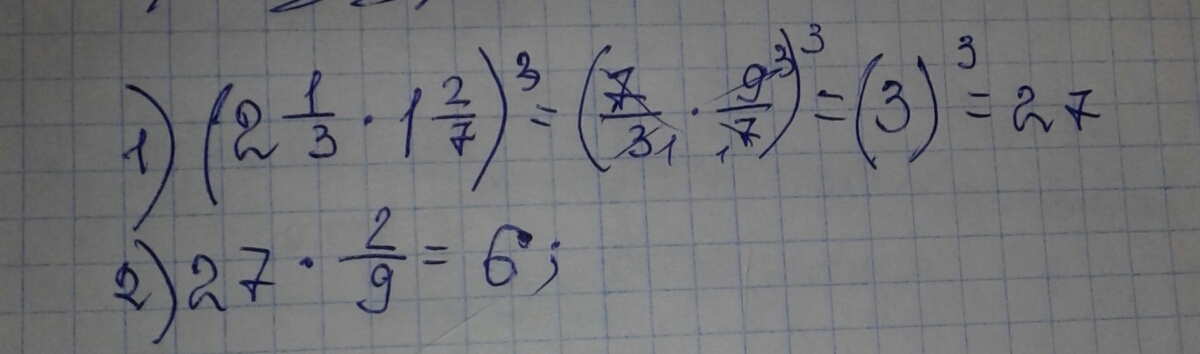 1) (2 1/3 · 1 2/7)³ = (7/3 1 · 9 3/1 7)³ = (3)³ = 27
2) 27 · 2/9 = 6;